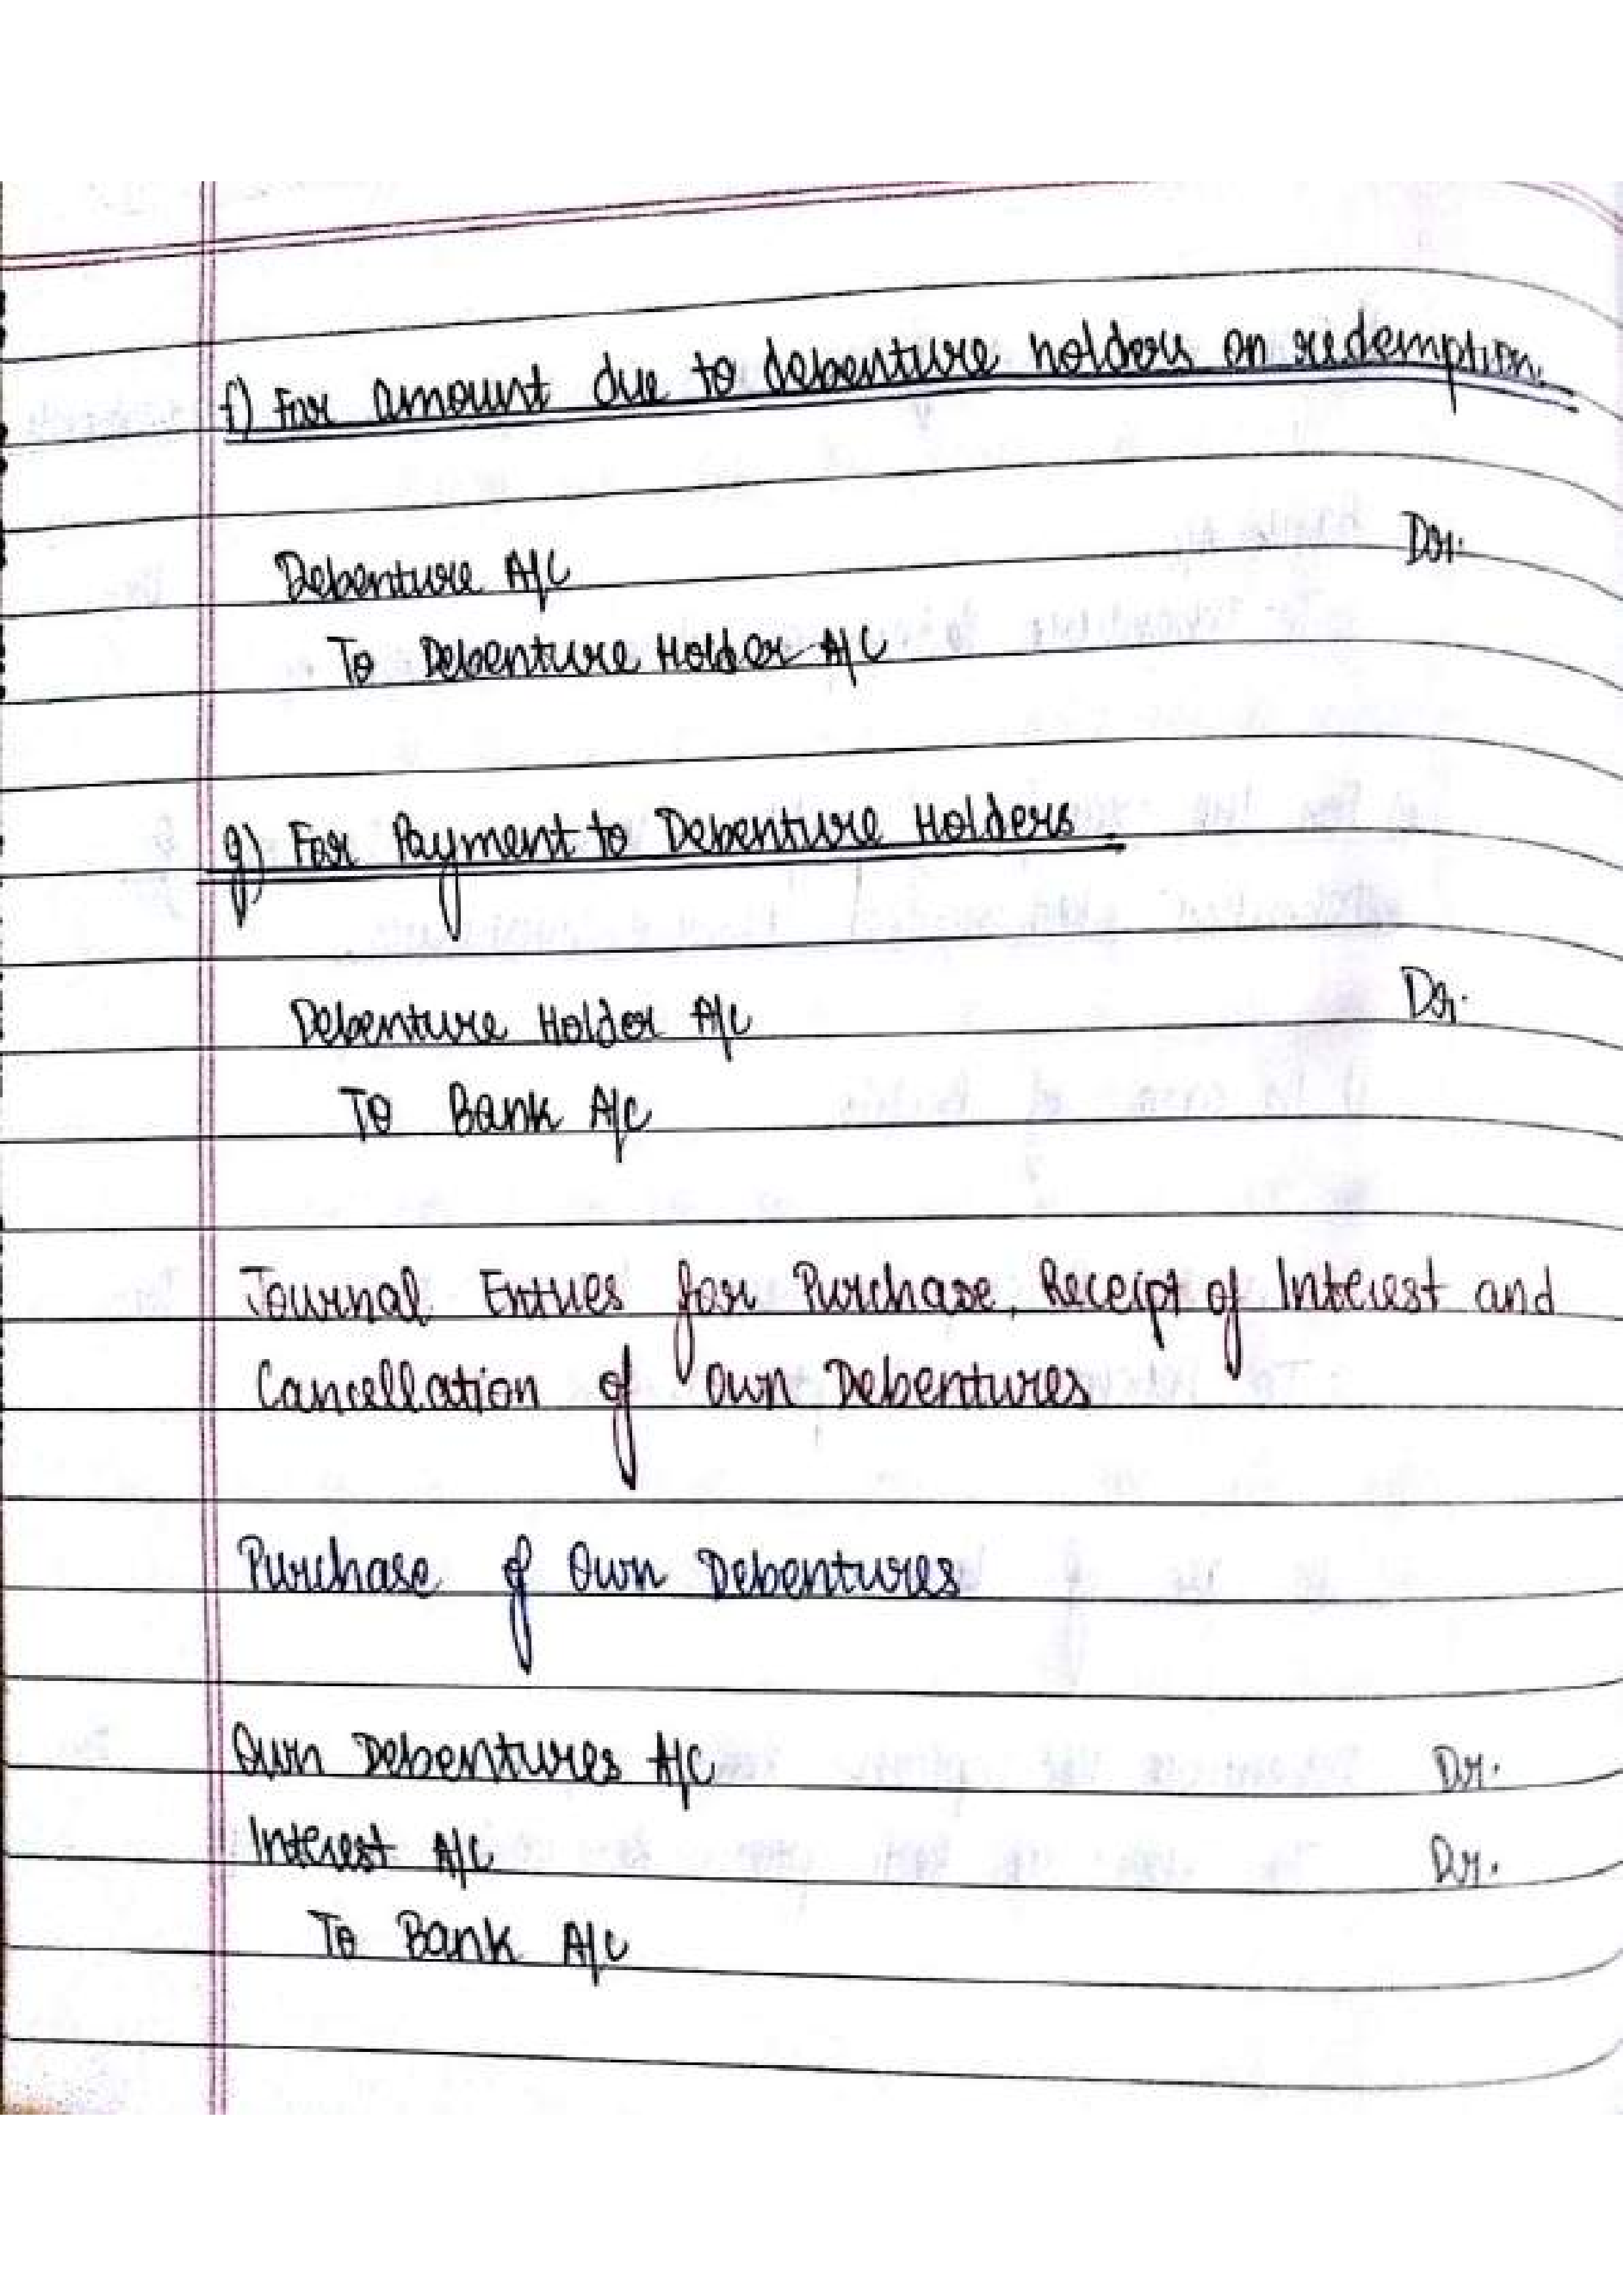 f) For amount due to debenture holders on redemption.
Debenture A/C Dr.
To Debenture Holder A/C
g) For Payment to Debenture Holders
Debenture Holder A/C Dr.
To Bank A/C
Journal Entries for Purchase, Receipt of Interest and
Cancellation of own Debentures
Purchase of Own Debentures
Own Debentures A/C Dr.
Interest A/C Dr.
To Bank A/C